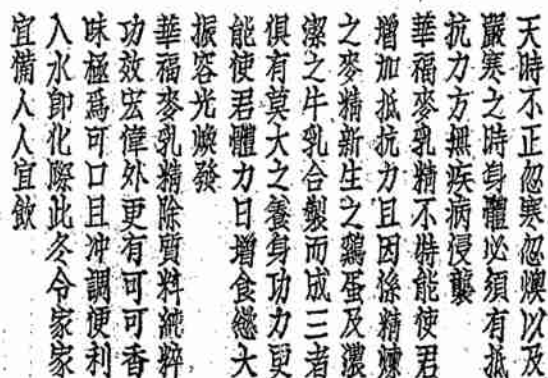 天時不正忽寒忽燠以及
嚴寒之時身體必須有抵
抗力方無疾病侵襲
華福麥乳精不特能使君
增加抵抗力且因係精煉
之麥精新生之鷄蛋及濃
潔之牛乳合製而成三者
俱有莫大之養身功力更
能使君體力日增食慾大
振容光煥發
華福麥乳精除質料純粹
功效宏偉外更有可可香
味極爲可口且冲調便利
入水卽化際此冬令家家
宜備人人宜飲